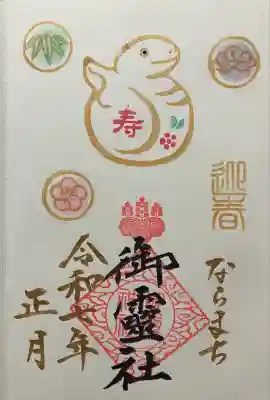 寿
迎春
ならまち
御霊社
令和七年
正月